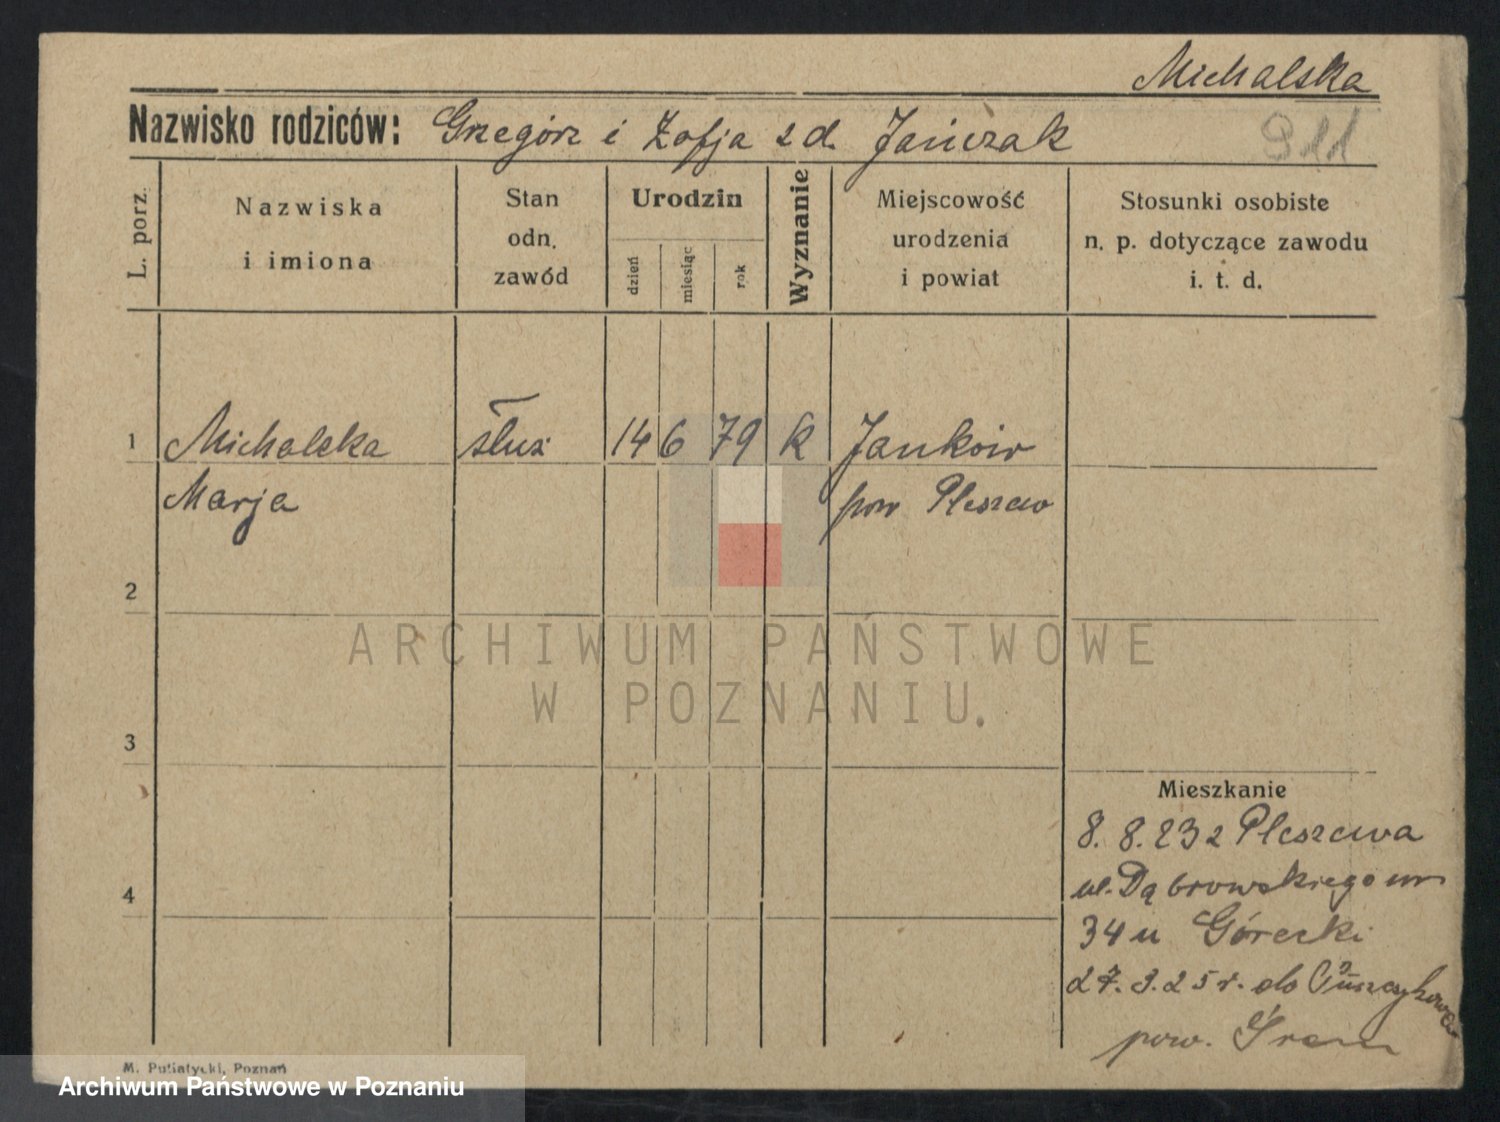 Michalska
Nazwisko rodziców: Grzegórz i Zofja z d. Jańczak
911
L. porz.
Nazwiska
i imiona
Stan
odn.
zawód
Urodzin
dzień
miesiąc
rok
Wyznanie
Miejscowość
urodzenia
i powiat
Stosunki osobiste
n. p. dotyczące zawodu
i. t. d.
1 Michalska służ 14 6 79 k Janków
Marja pow Pleszew
2
3
4
ARCHIWUM PAŃSTWOWE
W POZNANIU.
Mieszkanie
8. 8. 23 z Pleszewa
ul. Dąbrowskiego nr
34 u Górecki
27. 3. 25 r. do Puszczykowa
pow. Śrem
M. Putiatycki, Poznań
Archiwum Państwowe w Poznaniu